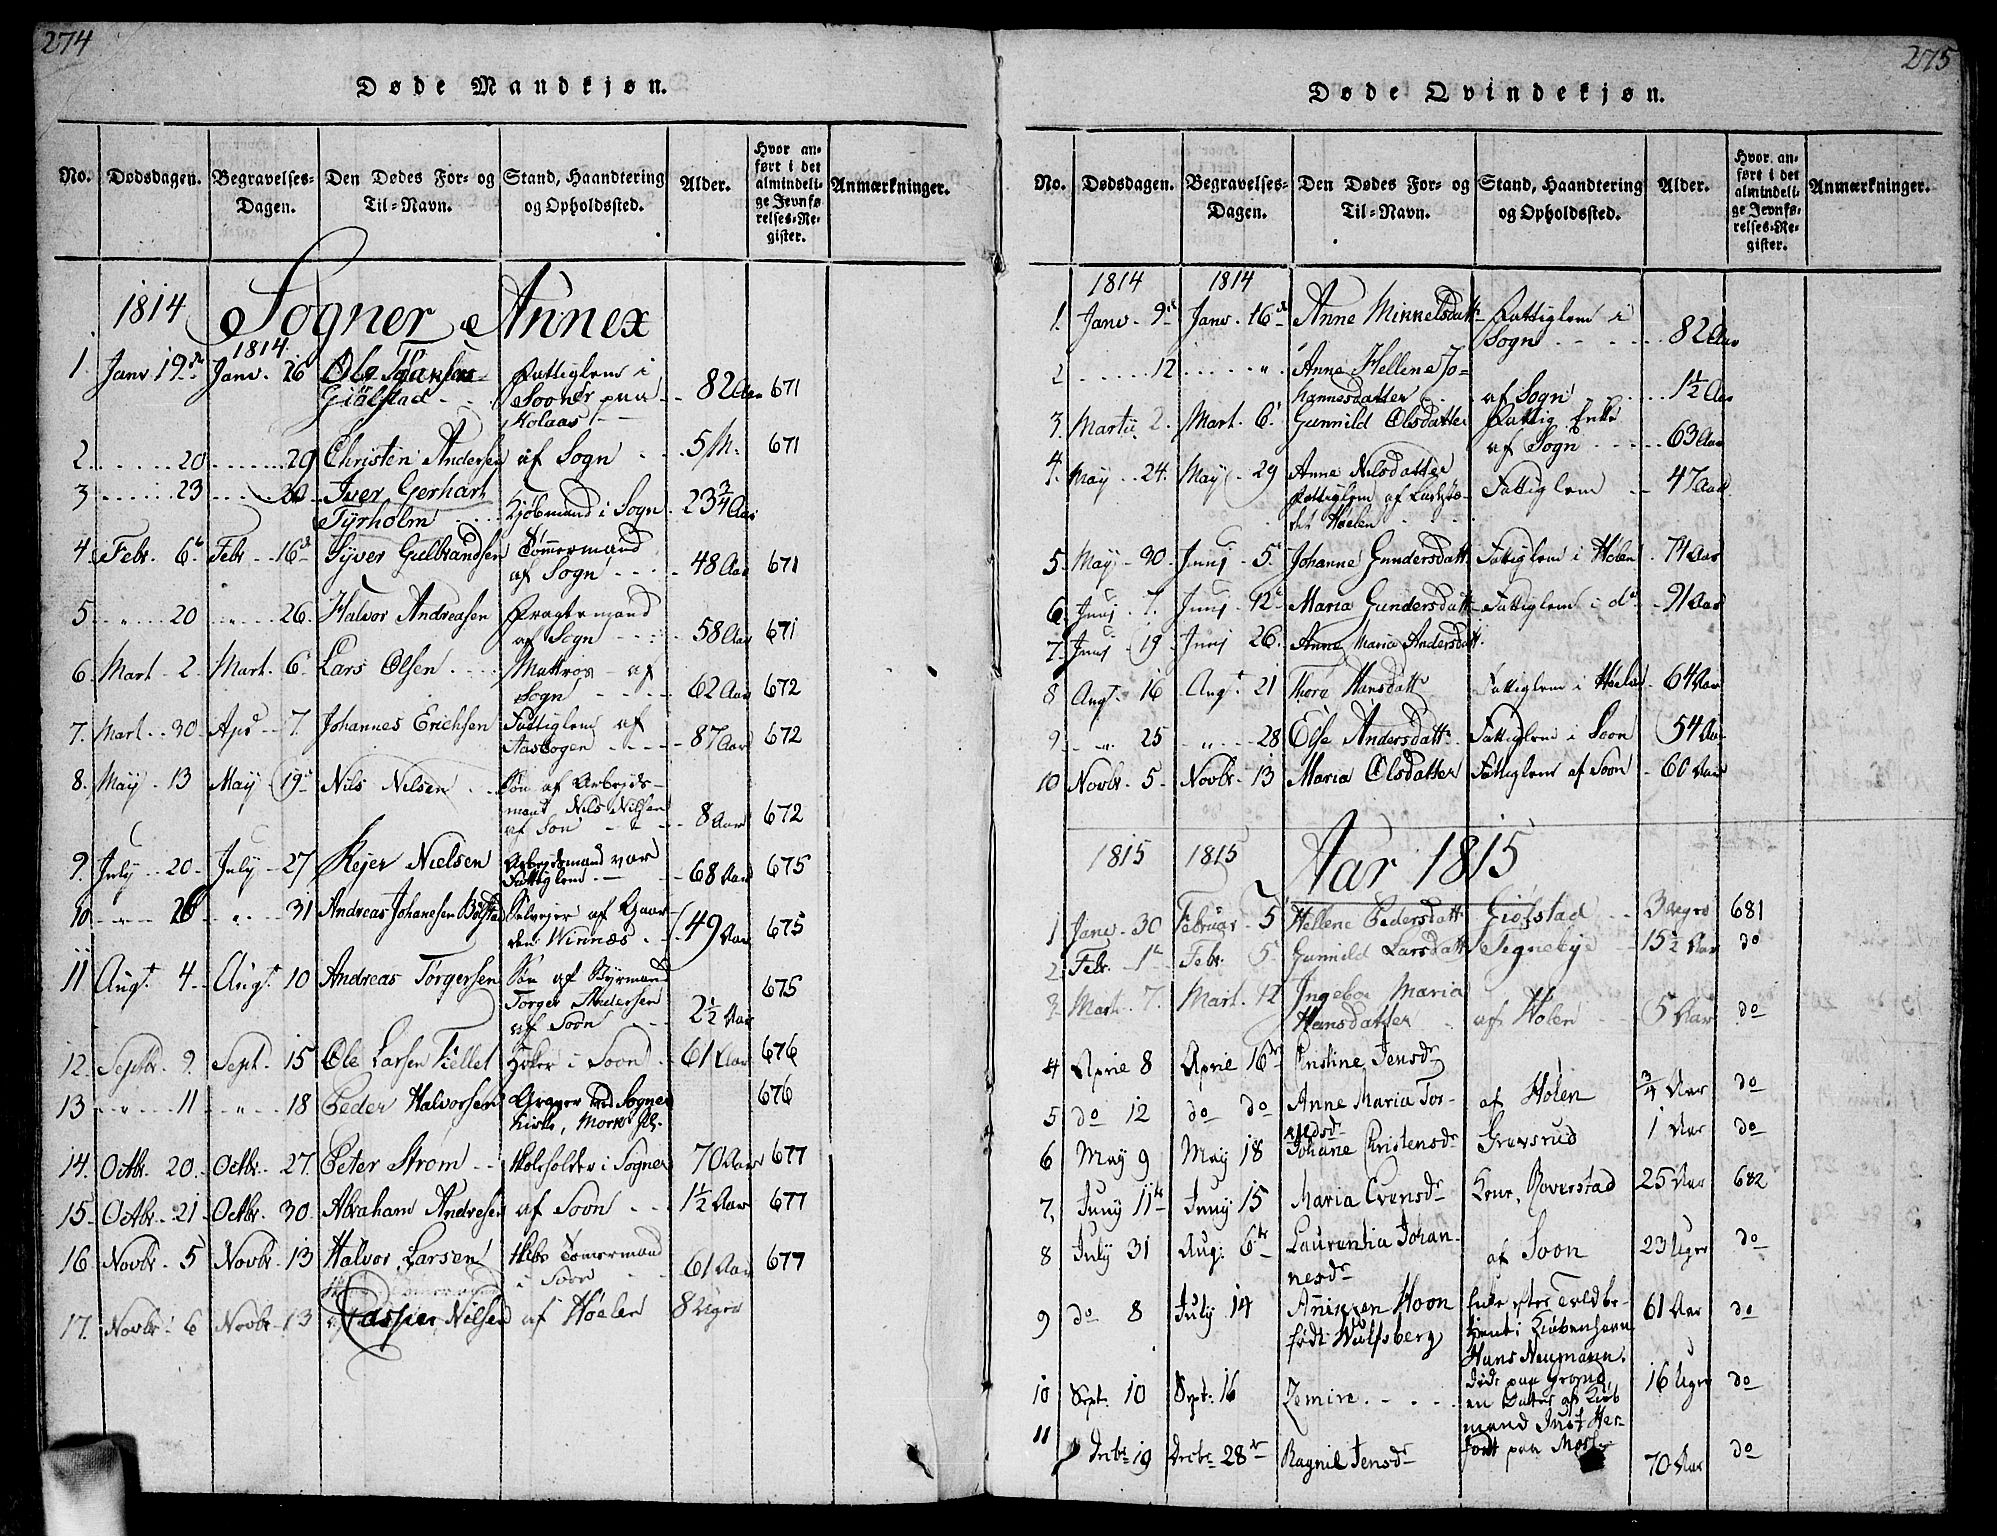 274
Døde Mandkjøn.
No. Dødsdagen. Begravelses-Dagen. Den Dødes For- og Til-Navn. Stand, Haandtering og Opholdssted. Alder. Hvor anført i det almindelige Jevnførelses-Register. Anmærkninger.
1814 Sogner Annex
1814
1. Janv 19de Janv. 26 Ole Hansen Fattiglem i
Giølstad Sooner paa 82 Aar 671
Kolaas
2. 20 29 Christen Andersen af Sogn 5 M. 671
3 23 Iver Gerhart
Tyrholm Kjøbmand i Sogn 23 3/4 Aar
4 Febr. 6 Febr 16d Syver Gulbrandsen Tømmermand
af Sogn 48 Aar 671
5 " 20 " 26. Halvor Andreasen Fragtemand
af Sogn 58 Aar 671
6 Mart 2 Mart. 6 Lars Olsen Mattros af
Sogn 62 Aar 672
7. Mart 30 Apr 7. Johannes Erichsen Fattiglem af
87 Aar 672
8. May 13 May 19 Nils Nilsen Søn af Arbejds-
mant Nils Nilsen
af Son 8 Aar 672
9. July 20 July 27 Rejer Nielsen Arbejdsmand var
Fattiglem 68 Aar 675
10 " 26 " 31 Andreas Johanesen Selvejer af Gaar-
den Winnæs 49 Aar 675
11 Augt. 4 Augt. 10 Andreas Torgersen Søn af Styrmand
Torger Andersen 2 1/2 Aar 675
af Soon
12. Septbr. 9. Sept. 15 Ole Larsen Fiellet Høker i Soon 61 Aar 676
13 " 11 " 18 Peder Halvorsen Graver ved Sogner 676
Kirke,
14. Octbr. 20. Octbr. 27. Peter Strøm i Sogner 70 Aar 677
15. Octbr. 21 Octbr. 30. Abraham Andresen af Soon 1 1/2 Aar 677
16 Novbr. 5 Novbr. 13 Halvor Larsen Tømermand
i Soon 61 Aar 677
17. Novbr. 6 Novbr. 13 Casper Nilsen af Høelen 8 Uger
275
Døde Qvindekjøn.
No. Dødsdagen. Begravelses-Dagen. Den Dødes For- og Til-Navn. Stand, Haandtering og Opholdssted. Alder. Hvor anført i det almindelige Jevnførelses-Register. Anmærkninger.
1814 1814
1. Janv. 9d Janv. 16d Anne Minnelsdatt Fattiglem i
Sogn 82 Aar
2 12 " Anne Hellene Jo-
hannesdatter af Sogn 1 1/2 Aar
3. Martii 2. Mart. 6 Gunnild Olsdatter Fattig Enke
af Sogn 63 Aar
4. May 24. May 29 Anne Nilsdatter
Fattiglem af
det Høelen Fattiglem 47 Aar
5 May 30 Junj 5 Johanne Gundersdatt Fattiglem i Holen 74 Aar
6 Junj 7. Junj 12 Maria Gundersdatt Fattiglem i do 91 Aar
7. Junj 19 Junj 26. Anne Maria Andersdatt.
8 Augt. 16 Augt. 21 Thora Hansdatt Fattiglem i Høelen 64 Aar
9 " 25 " 28 Else Andersdatt Fattiglem i Soon 54 Aar
10 Novbr. 5 Novbr. 13 Maria Olsdatter Fattiglem af Soon 60 Aar
1815 1815 Aar 1815
1 Janv. 30 Februar 5 Hellene Pedersdatt Giølstad 3 Uger 681
2 Febr. 1 Febr. 5 Gunnild Larsdatt Tegnebye 15 1/2 Aar do
3 Mart. 7. Mart. 12 Ingebor Maria
Hansdatter af Holen 5 Aar do
4 Aprie 8 Aprie 16de Cristine Jensdr
5 do 12 do do Anne Maria Tor- af Holen 3/4 Aar do
6 May 9 May 18 Johane Christensdr Gravsrud 1 Aar do
7. Juny 11te Juny 15 Maria Evensdr Roverstad 25 Aar 682
8 July 31 Aug: 6te Laurentia Johan-
nesdr af Soon 23 Uger do
9 do 8 July 14 Anniken Hoon Enke efter Toldbe-
født Wulfsberg tjent i Kiøbenhavn 61 Aar do
Hans Neumann,
10 Sept. 10 Sept: 16 Zemire 16 Uger do
en Datter af Kiøb
mand Just Her-
fort paa Moss
11 Decbr 19 Decbr 28de Ragnil Jensdr 70 Aar do